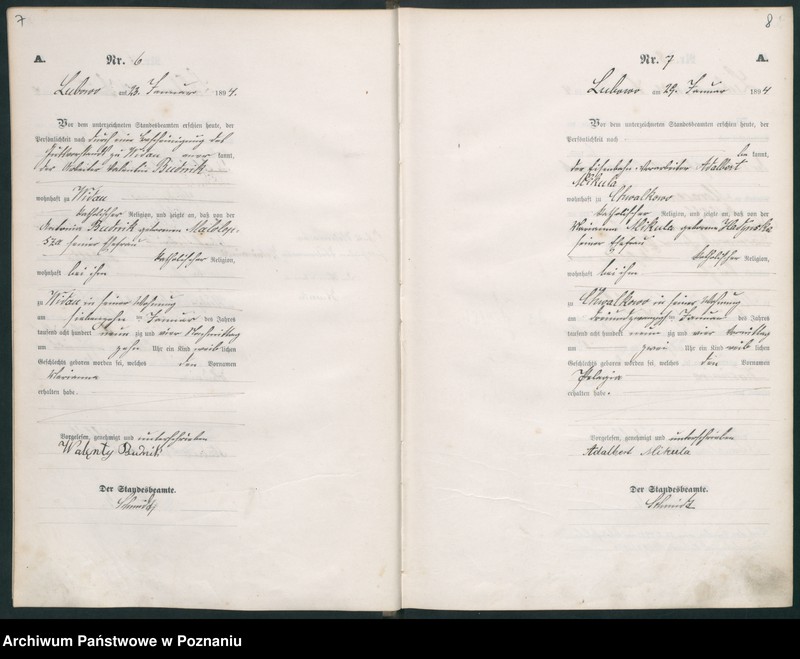 7
A.
Nr. 6
Lubowo am 23. Januar 1894.
Vor dem unterzeichneten Standesbeamten erschien heute, der
Persönlichkeit nach durch eine Bescheinigung des
zu Widau kannt,
der Arbeiter Valentin Budnik
wohnhaft zu Widau
katholischer Religion, und zeigte an, daß von der
Antonia Budnik geborenen
seiner Ehefrau
katholischer Religion,
wohnhaft bei ihm
zu Widau in seiner Wohnung
am siebenzehn ten Januar des Jahres
tausend acht hundert neun zig und vier Vormittag
um zehn Uhr ein Kind weib lichen
Geschlechts geboren worden sei, welches den Vornamen
Marianna
erhalten habe.
Vorgelesen, genehmigt und unterschrieben
Walenty Budnik
Der Standesbeamte.
Schmidt
8
Nr. 7
A.
Lubowo am 29. Januar 1894
Vor dem unterzeichneten Standesbeamten erschien heute, der
Persönlichkeit nach
be kannt,
der Eisenbahn-Vorarbeiter Adalbert
Mikula
wohnhaft zu Chwalkowo
katholischer Religion, und zeigte an, daß von der
Marianna Mikula geborene
seiner Ehefrau
katholischer Religion,
wohnhaft bei ihm
zu Chwalkowo in seiner Wohnung
am dreiundzwanzigsten Januar des Jahres
tausend acht hundert neun zig und vier Vormittag
um zwei Uhr ein Kind weib lichen
Geschlechts geboren worden sei, welches den Vornamen
Pelagia
erhalten habe.
Vorgelesen, genehmigt und unterschrieben
Adalbert Mikula
Der Standesbeamte.
Schmidt
Archiwum Państwowe w Poznaniu